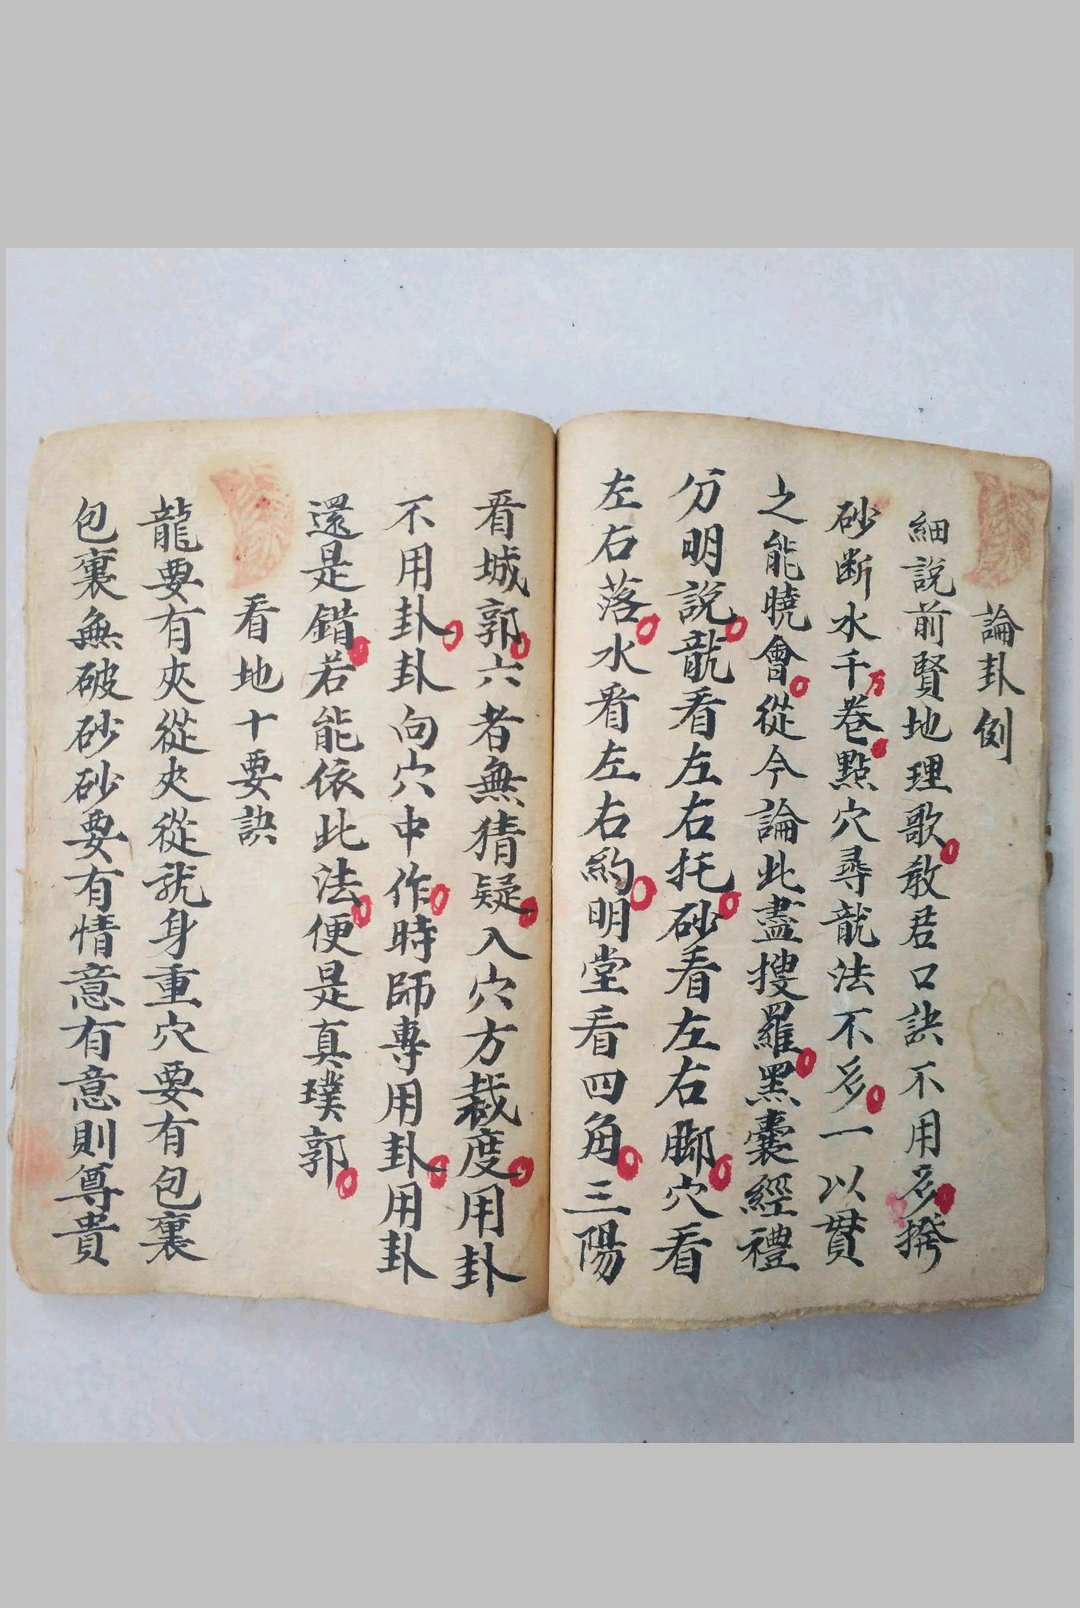 論卦例
細說前賢地理歌教君口訣不用多撥
砂断水千万卷點穴尋龍法不多一以貫
之能曉會從今論此盡搜羅黑囊經禮
分明說龍看左右托砂看左右脚穴看
左右落水看左右約明堂看四角三陽
看城郭六者無猜疑入穴方裁度用卦
不用卦卦向穴中作時師專用卦用卦
還是錯若能依此法便是真璞郭
看地十要訣
龍要有夾從夾從就身重穴要有包裹
包裹無破砂砂要有情意有意則尊貴